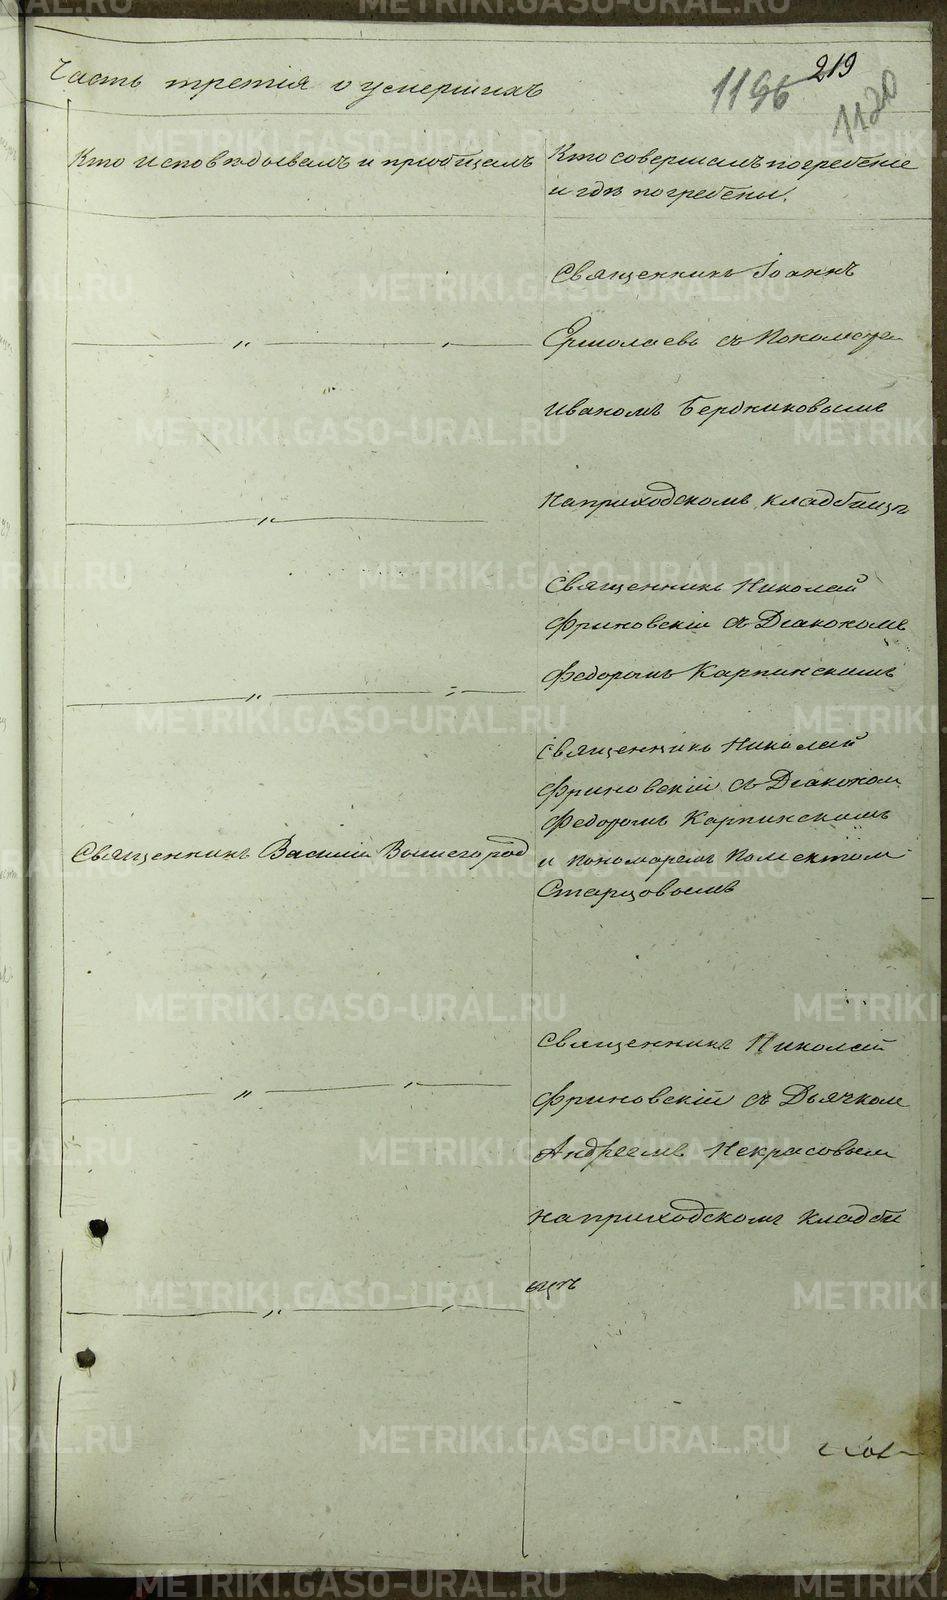 219
1196
1120
Часть третія о умершихъ
Кто исповѣдывалъ и пріобщалъ
Кто совершалъ погребеніе
и гдѣ погребены.
Священникъ Іоаннъ
Ермолаевъ съ
Иваномъ Бердниковымъ
на приходскомъ кладбищѣ
Священникъ Николай
Фриновскій съ Діакономъ
Федоромъ Карпинскимъ
Священникъ Николай
Фриновскій съ Діакономъ
Федоромъ Карпинскимъ
Священникъ Василій Вышегород
и пономаремъ
Старцовымъ
Священникъ Николай
Фриновскій съ Дьячкомъ
Андреемъ Некрасовым
на приходскомъ кладби
щѣ
METRIKI.GASO-URAL.RU